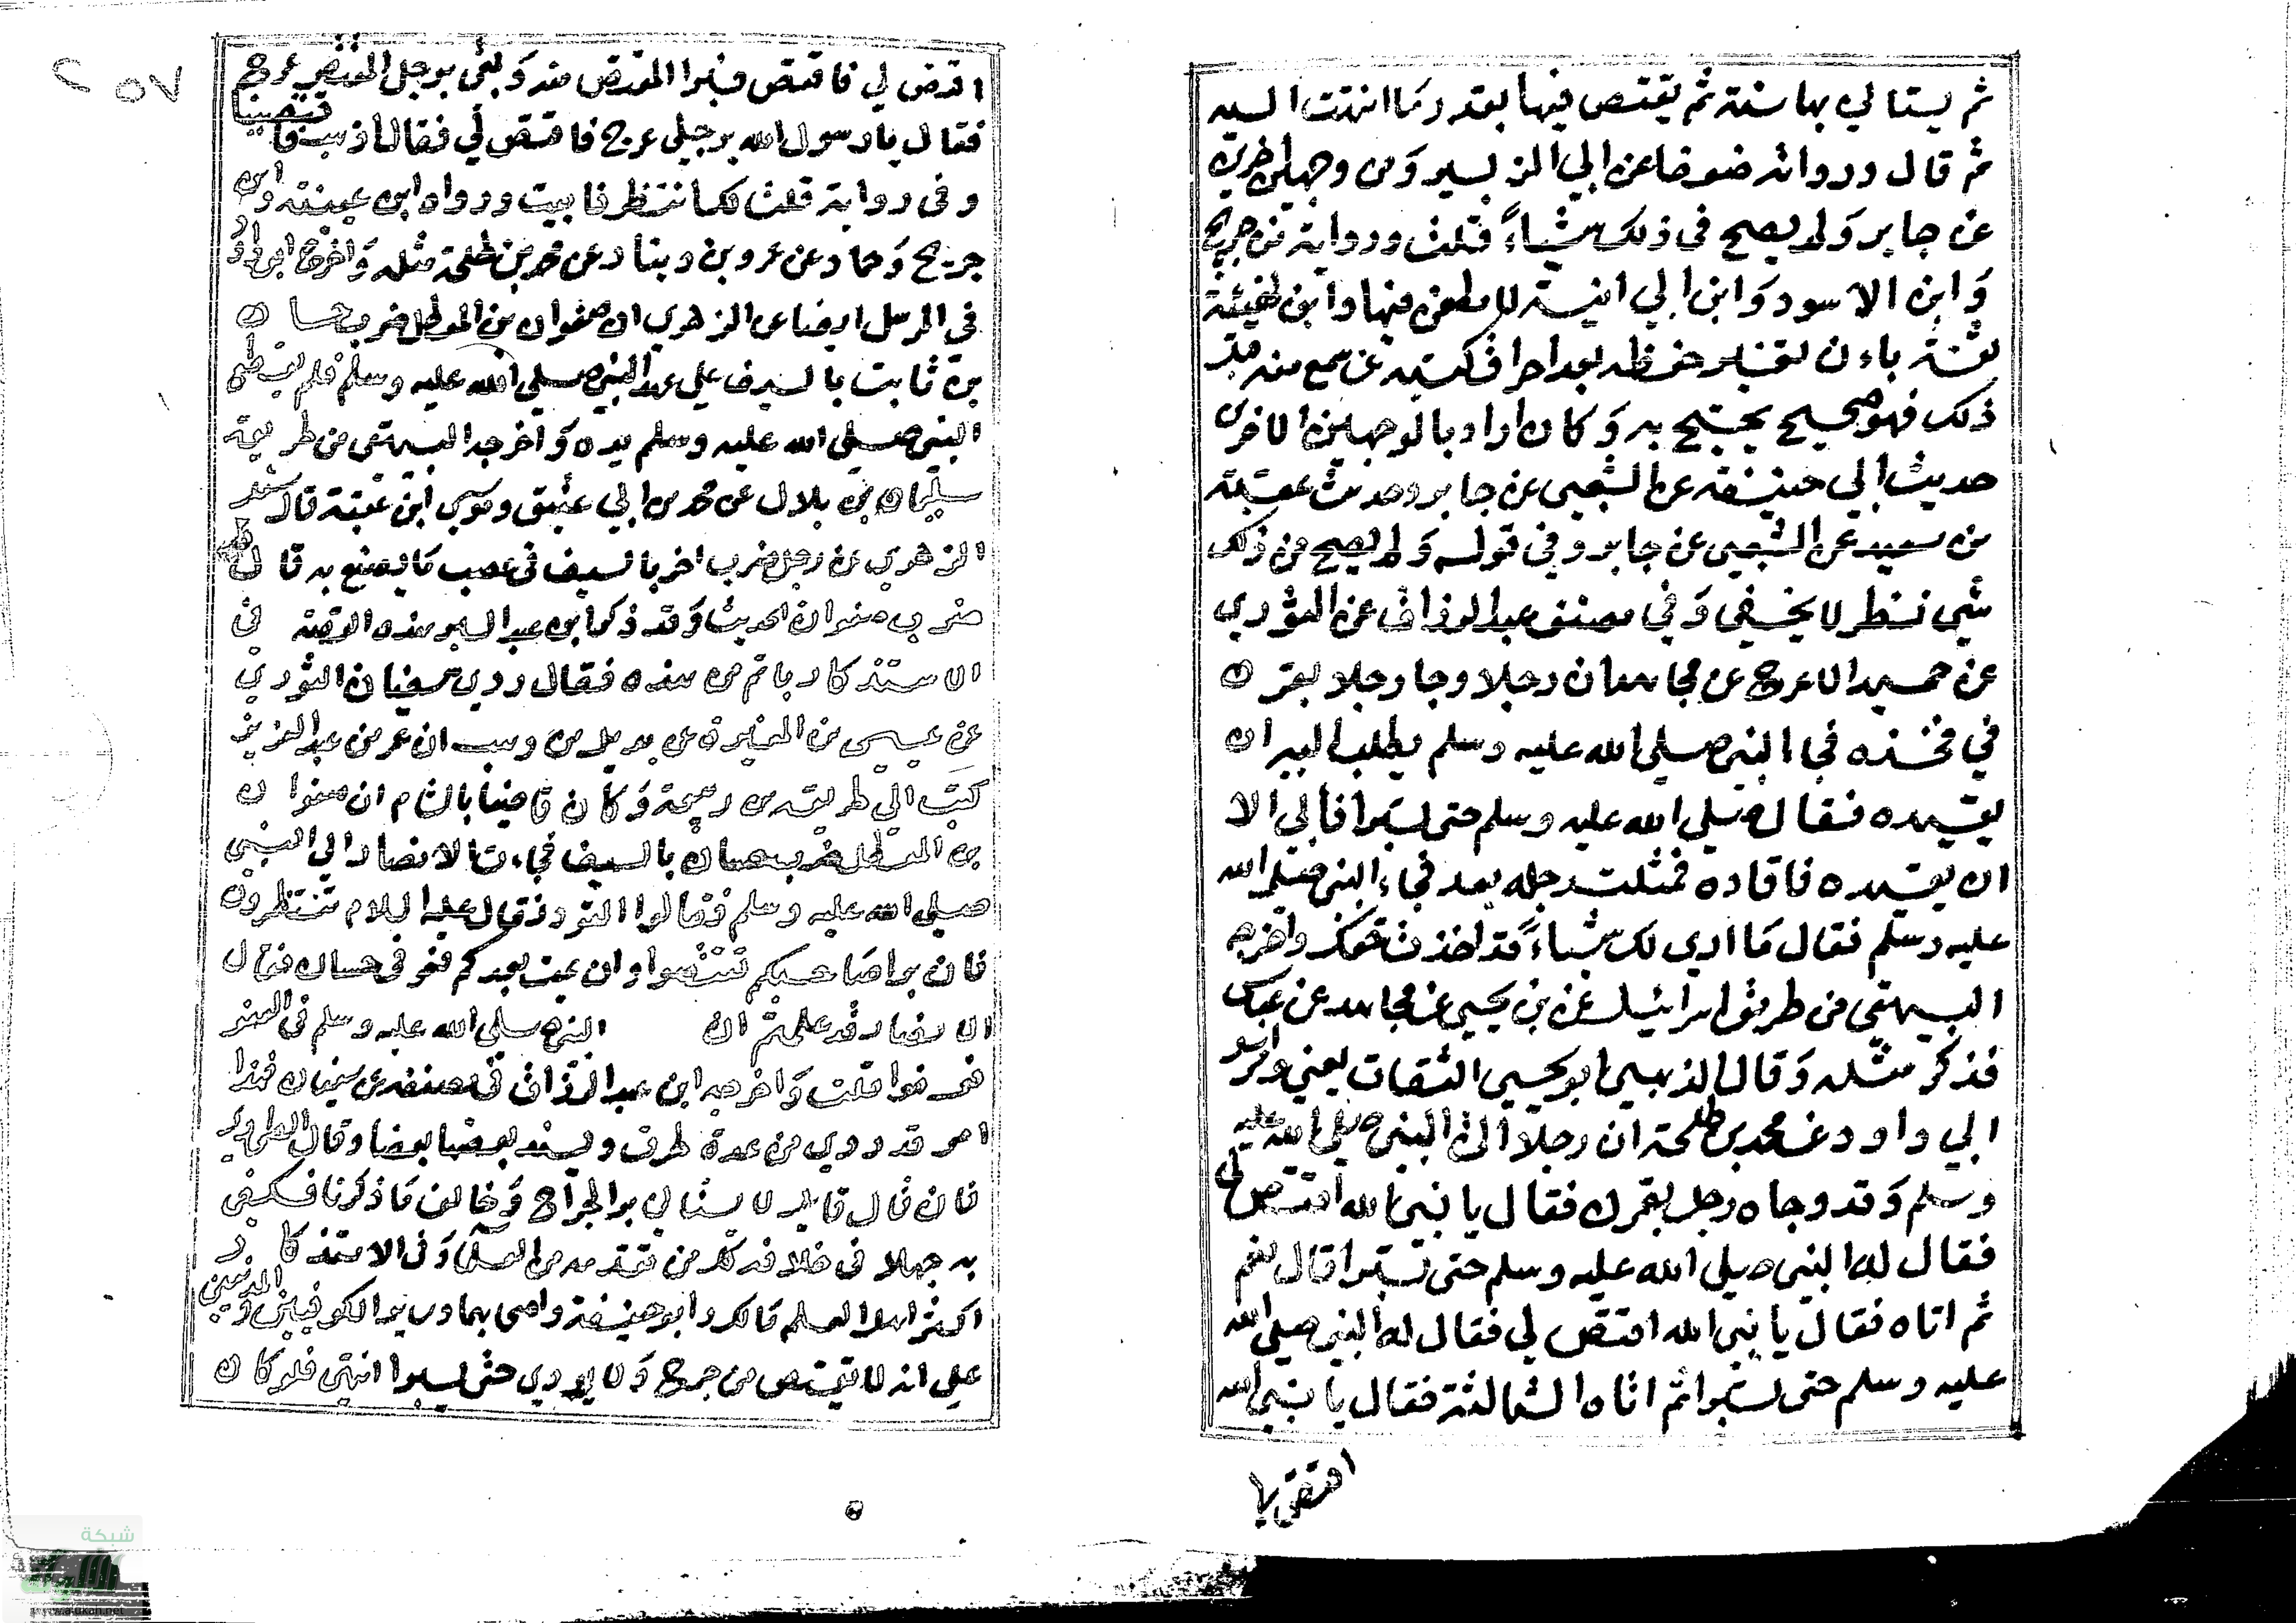 ثم يستاني بها سنة ثم يقتص فيها بقدر ما انتهت اليه
ثم قال وروانه ضعفا عن ابي الزبير ومن وجهين اخرين
عن جابر ولم يصح في ذلك شيأ قلت ورواية بن جريج
وابن الاسود وابن ابي انيسة لا مطعن فيها وابن لهيعة
ذلك فهو صحيح يحتج به وكان اراد بالوجهين الاخرى
حديث ابي حنيفة عن الشعبي عن جابر وحديث عقبة
من سعيد عن الشعبي عن جابر وفي قوله ولم يصح من ذلك
شي نظر لا يخفى وفي مصنف عبد الرزاق عن الثوري
عن حميد الاعرج عن مجاهد ان رجلا وجا رجلا بقرن
في فخذه فجا النبي صلى الله عليه وسلم يطلب اليه ان
يقيده فقال صلى الله عليه وسلم حتى تبرا فابي الا
ان يقيده فاقاده فشلت رجله بعد فجاء النبي صلى الله
عليه وسلم فقال ما ارى لك شيأ قد اخذت حقك واخرجه
البيهقي من طريق اسرائيل عن بن يحيى عن مجاهد عن
فذكر مثله وقال الذهبي ابو يحيى القتات يعني
ابي داود عن محمد بن طلحة ان رجلا اتى النبي صلى الله عليه
وسلم وقد وجاه رجل بقرن فقال يا نبي الله اقتص لي
فقال له النبي صلى الله عليه وسلم حتى تبرا قال نعم
ثم اتاه فقال يا نبي الله اقتص لي فقال له النبي صلى الله
عليه وسلم حتى تبرا ثم اتاه الثالثة فقال يا نبي الله
اقتص لي
٢٥٧
اقتص لي فاقتص فبرا المقتص منه وبقي برجل المقتص عرج
فقال يا رسول الله برجلي عرج فاقتص لي فقال اذهب
وفي رواية قلت لك انتظر فابيت ورواه ابن عيينة وابن
جريج وحماد عن عمرو بن دينار عن محمد بن طلحة مثله واخرج ابو داود
في المرسل ايضا عن الزهري ان صفوان بن المعطل ضرب حسان
بن ثابت بالسيف على عهد النبي صلى الله عليه وسلم فلم يقطع
النبي صلى الله عليه وسلم يده واخرجه البيهقي من طريقه
سليمان بن بلال عن محمد بن ابي عتيق وموسى ابن عقبة قال
الزهري عن رجل ضرب اخر بالسيف في غضب ما يصنع به قال
ضرب صفوان الحديث وقد ذكر ابن عبد البر هذه القصة في
الاستذكار باتم من هذه فقال روى سفيان الثوري
عن عيسى بن المغيرة عن بديل بن وهب ان عمر بن عبد العزيز
كتب الى طريف بن ربيعة وكان قاضيا بالشام ان صفوان
بن المعطل ضرب حسان بالسيف فجاءت الانصار الى النبي
صلى الله عليه وسلم فقالوا القود فقال عليه السلام تنتظرون
فان برا صاحبكم تقتصوا وان يمت نقدكم فعوفي حسان فقال
الانصار قد علمتم ان النبي صلى الله عليه وسلم في العفو
فعفوا قلت واخرجه ابن عبد الرزاق في مصنفه عن سفيان فهذا
امر قد روي من عدة طرق ويشد بعضها بعضا وقال الطحاوي
فان قال قائل لا يستاني برا الجراح وخالف ما ذكرنا فكفى
به جهلا في خلافه كل من تقدمه من العلماء وفي الاستذكار
اكثر اهل العلم مالك وابو حنيفة واصحابهما وسائر الكوفيين والمدنيين
على انه لا يقتص من جرح ولا يودي حتى يبرا انتهى فلو كان
شبكة